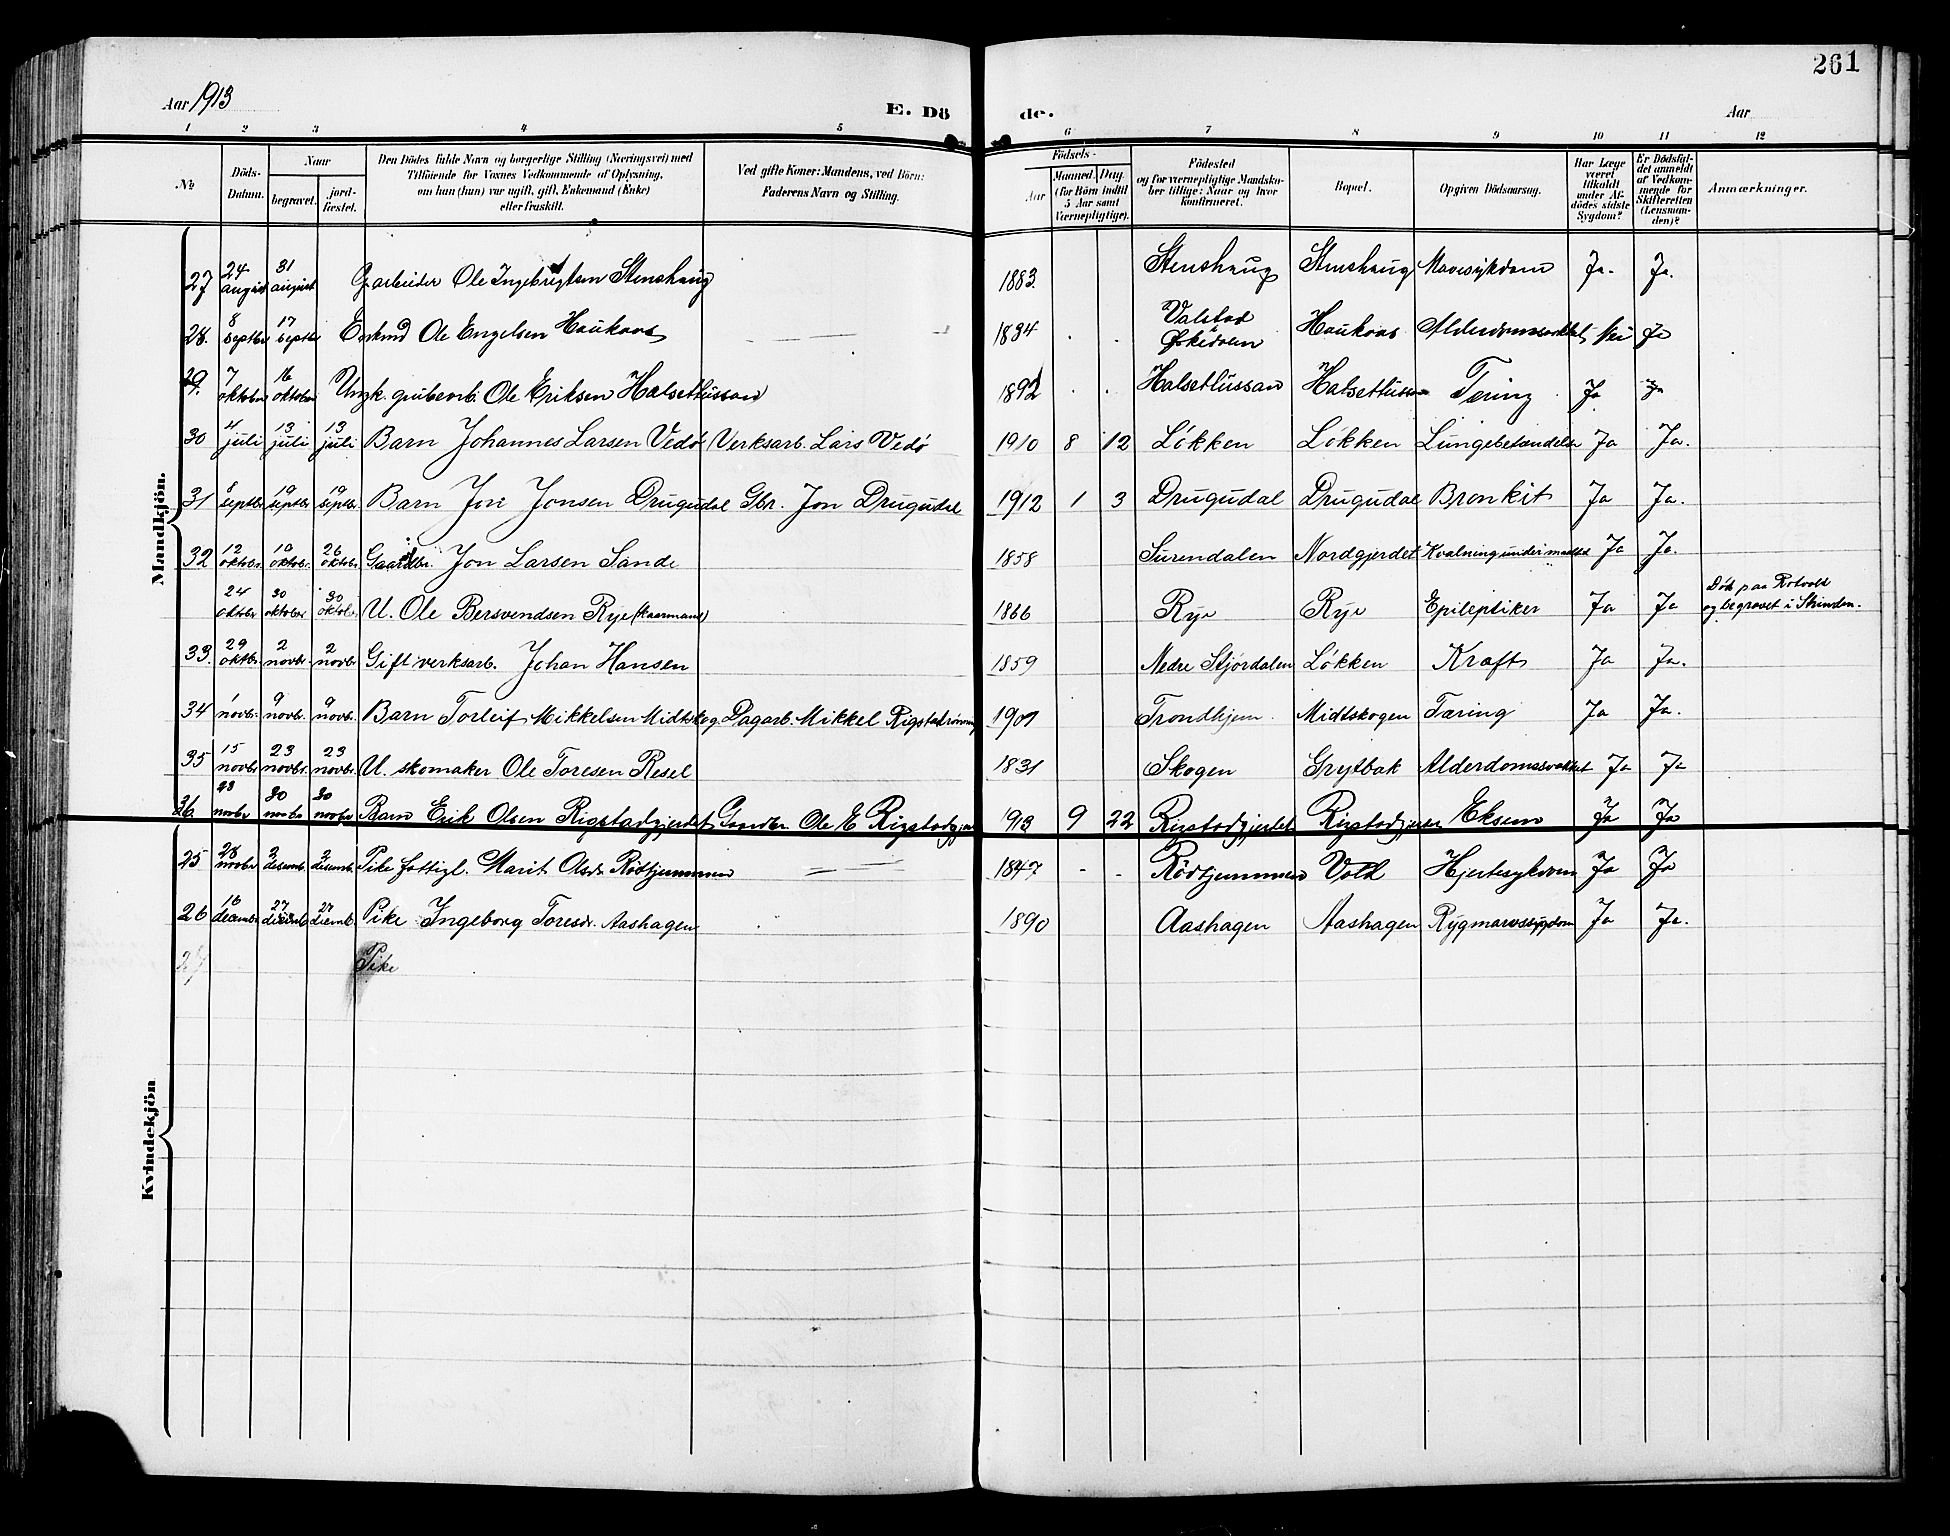 261
Aar 1913
E. Dö
de.
Aar
1 2 3 4 5 6 7 8 9 10 11 12
No
Döds-Datum.
Naar
begravet.
jord-fæstet.
Den Dödes fulde Navn og borgerlige Stilling (Næringsvei) med
Tilföiende for Voxnes Vedkommende af Oplysning,
om han (hun) var ugift, gift, Enkemand (Enke)
eller fraskilt.
Ved gifte Koner: Mandens, ved Börn:
Faderens Navn og Stilling.
Födsels-
Aar
Maaned. Dag.
(for Börn indtil
5 Aar samt
Værnepligtige).
Födested
og for værnepligtige Mandska-
ber tillige: Naar og hvor
konfirmeret.
Bopæl.
Opgiven Dödsaarsag.
Har Læge
været
tilkaldt
under Af-
dödes sidste
Sygdom?
Er Dödsfal-
det anmeldt
af Vedkom-
mende for
Skifteretten
(Lensman-
den)?
Anmærkninger.
Mandkjön.
27 24 august 31 august Garbeider Ole Ingebrigtsen Stenshaug 1883. Stenshaug Stenshaug Mavesykdom Ja. Ja.
28. 8 septbr 17 septbr Enkmd Ole Engelsen Haukaas — 1834 . . Valstad Ørkedalen Haukaas Alderdomssvakhet Nei Ja
29. 7 oktober 16 oktober Ungk. grubearb. Ole Eriksen Halsethussan 1892 . . Halsethussan Halsethussan Tæring Ja Ja
30 4 juli 13 juli 13 juli Barn Johannes Larsen Vedø Verksarb. Lars Vedø 1910 8 12 Løkken Løkken Lungebetændelse Ja Ja.
31 8 septbr 19 septbr. 19 septbr. Barn Jon Jonsen Drugudal Gbr. Jon Drugudal 1912 1 3 Drugudal Drugudal Bronkit Ja Ja.
32 12 oktobr. 19 oktobr. 26 oktobr. Gaardbr. Jon Larsen Sande 1858 Surendalen Nordgjerdet Kvalning under Ja Ja.
24 oktober 30 oktober 30 oktobr. U. Ole Bersvendsen Rye 1866 Rye Rye Epileptiker Ja Ja Død paa Rotvold
og begravet i Strinden.
33. 29 oktbr. 2 novbr. 2 novbr. Gift verksarb. Johan Hansen 1859 Nedre Stjørdalen Løkken Kræft Ja Ja.
34 1 novbr. 9 novbr. 9 novbr. Barn Torleif Mikkelsen Midtskog. Dagarb. Mikkel 1901 Trondhjem. Midtskogen Tæring Ja Ja.
35 15 novbr 23 novbr. 23 novbr. U. skomaker Ole Toresen Resel 1831 Skogen Grytbak Alderdomssvakhet Ja Ja
36. 28 novbr 30 novbr 30 novbr Barn Erik Olsen Rigstadgjerdet Gaardbr. Ole E Rigstadgjer 1913 9 22 Rigstadgjerdet Rigstadgjerdet Eksem Ja Ja
Kvindekjön
25 28 novbr 2 desemb. 2 desemb. Pike fattigl. Marit Olsdr. Rödtjummen — 1847 - - Rödtjummen Vold Hjertesykdom Ja Ja
26 16 decembr 27 decemb 27 decemb. Pike Ingeborg Toresdr. Aashagen 1890 Aashagen Aashagen Rygmarvssygdom Ja Ja.
27 Pike